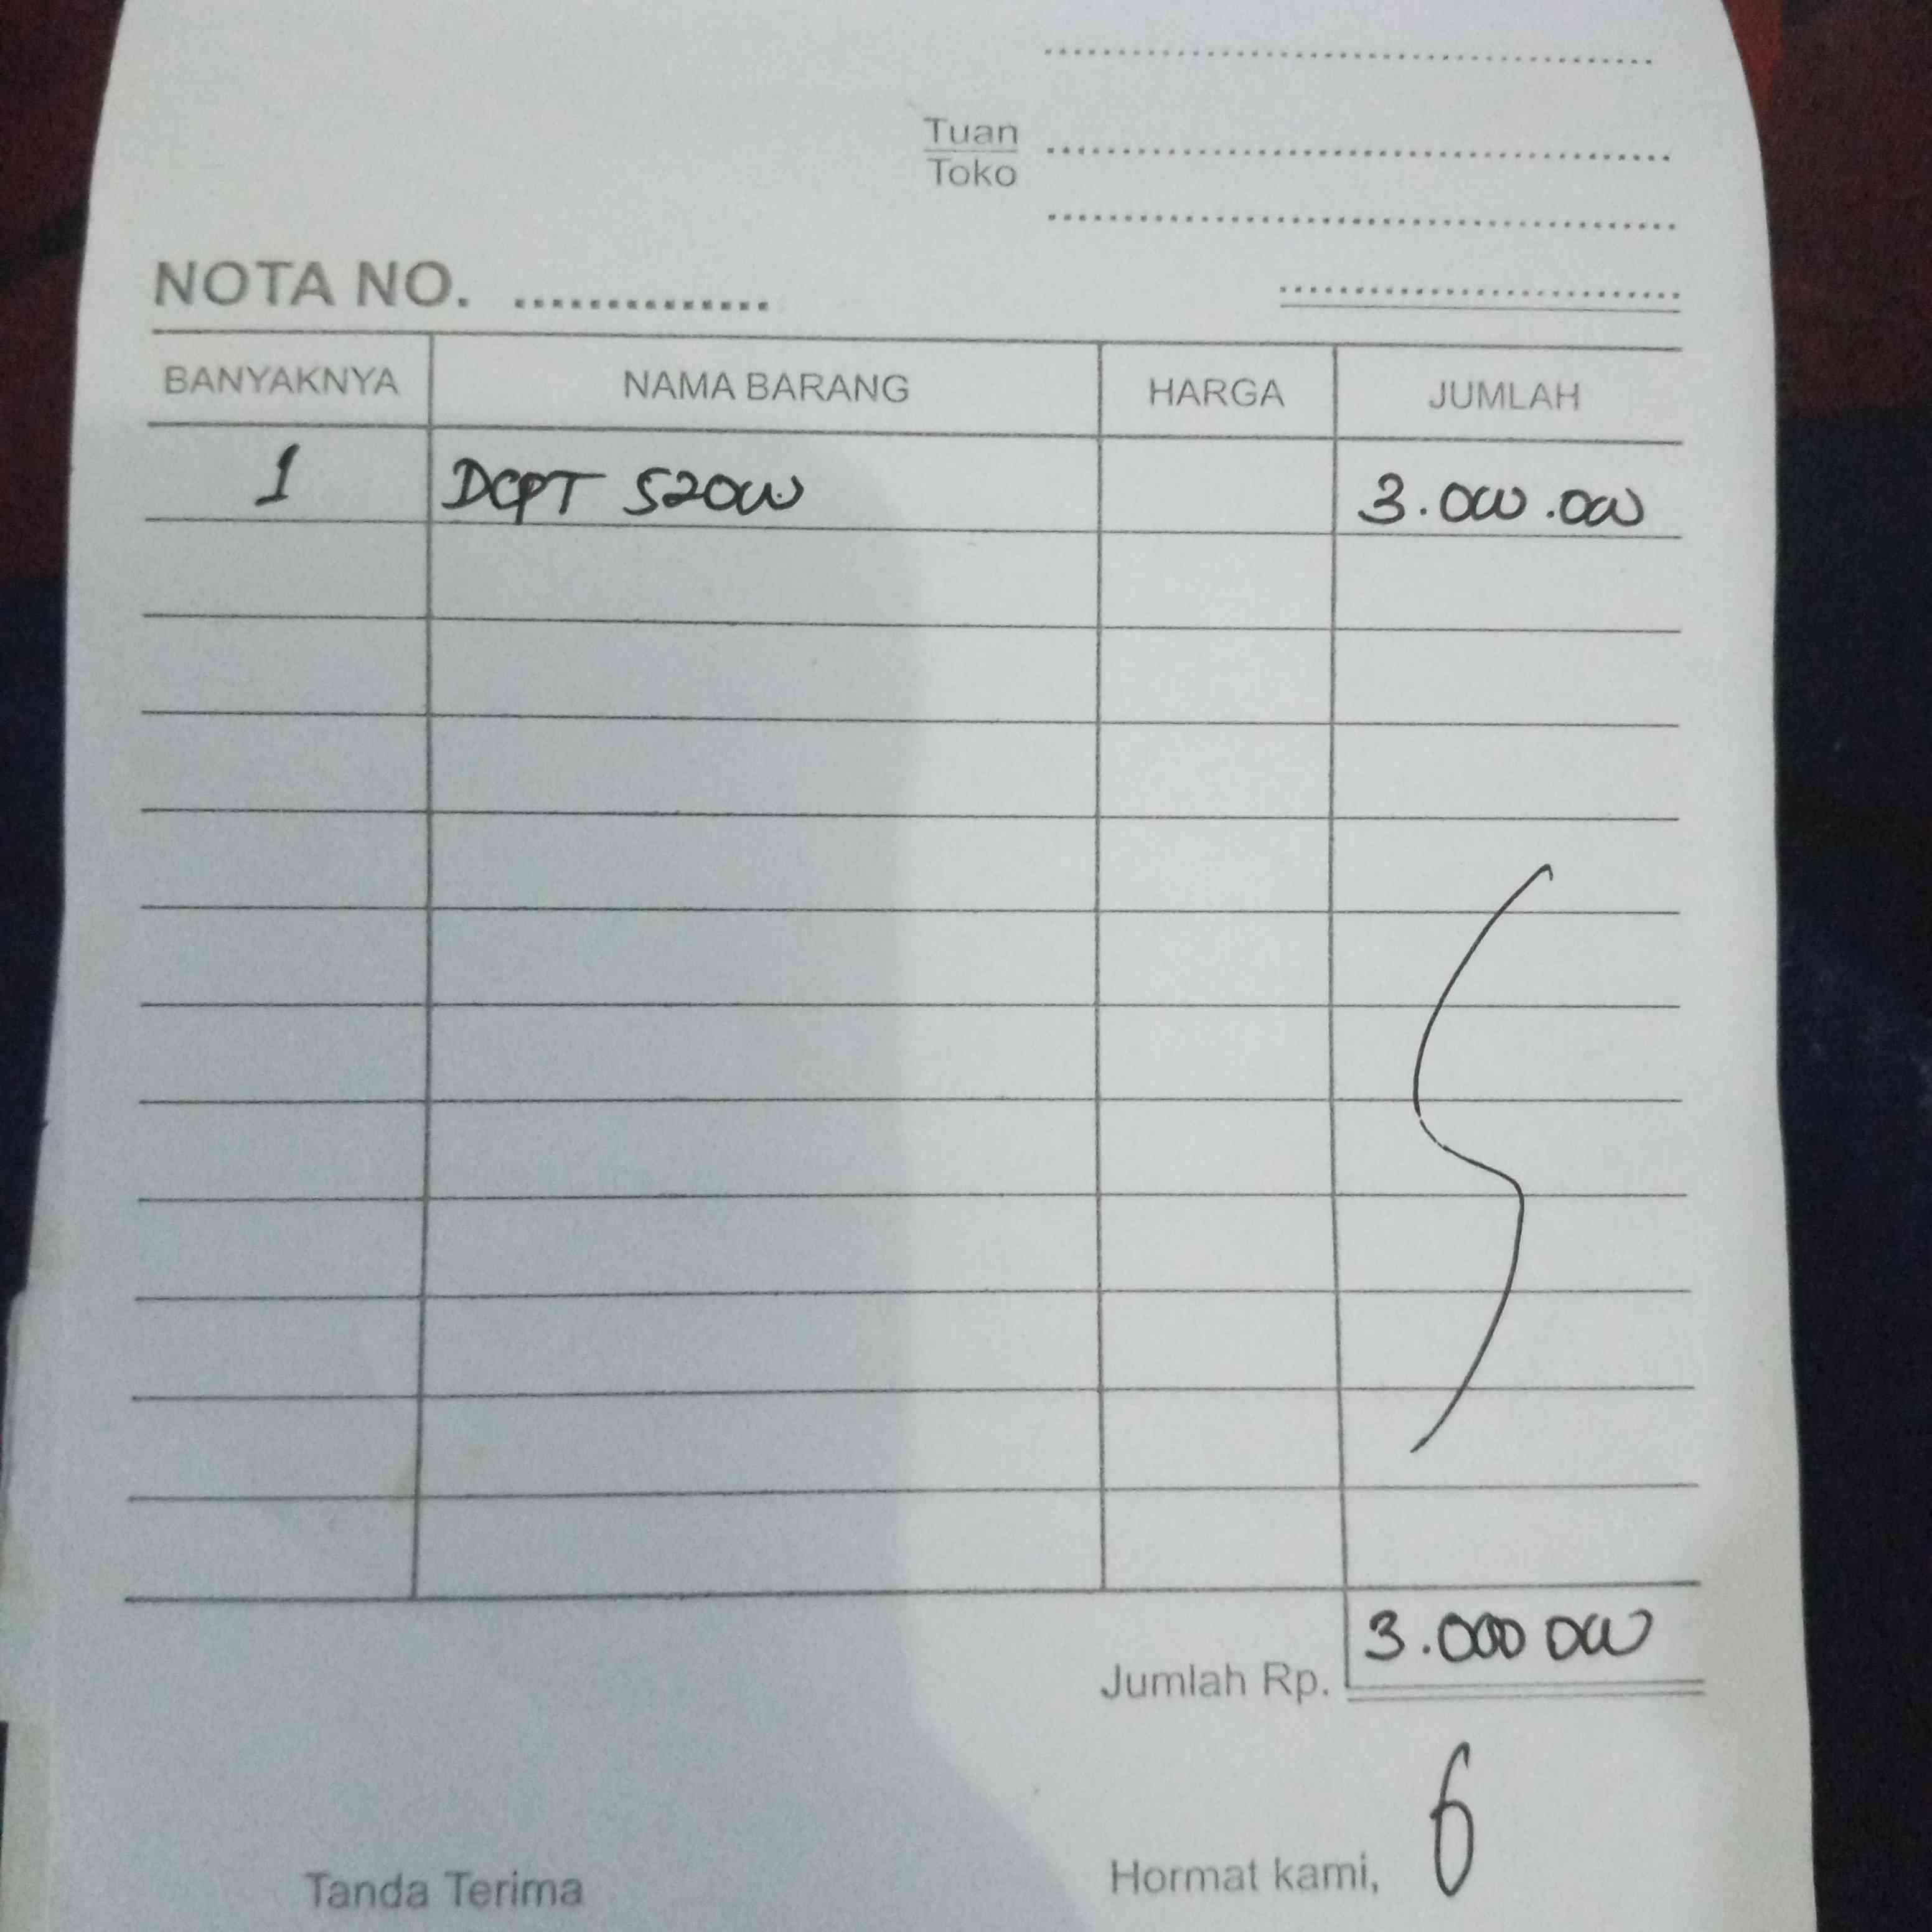 Tuan
Toko
NOTA NO. ..............
BANYAKNYA NAMA BARANG HARGA JUMLAH
1 DCPT 520W 3.000.000
Jumlah Rp. 3.000 000
Tanda Terima Hormat kami,